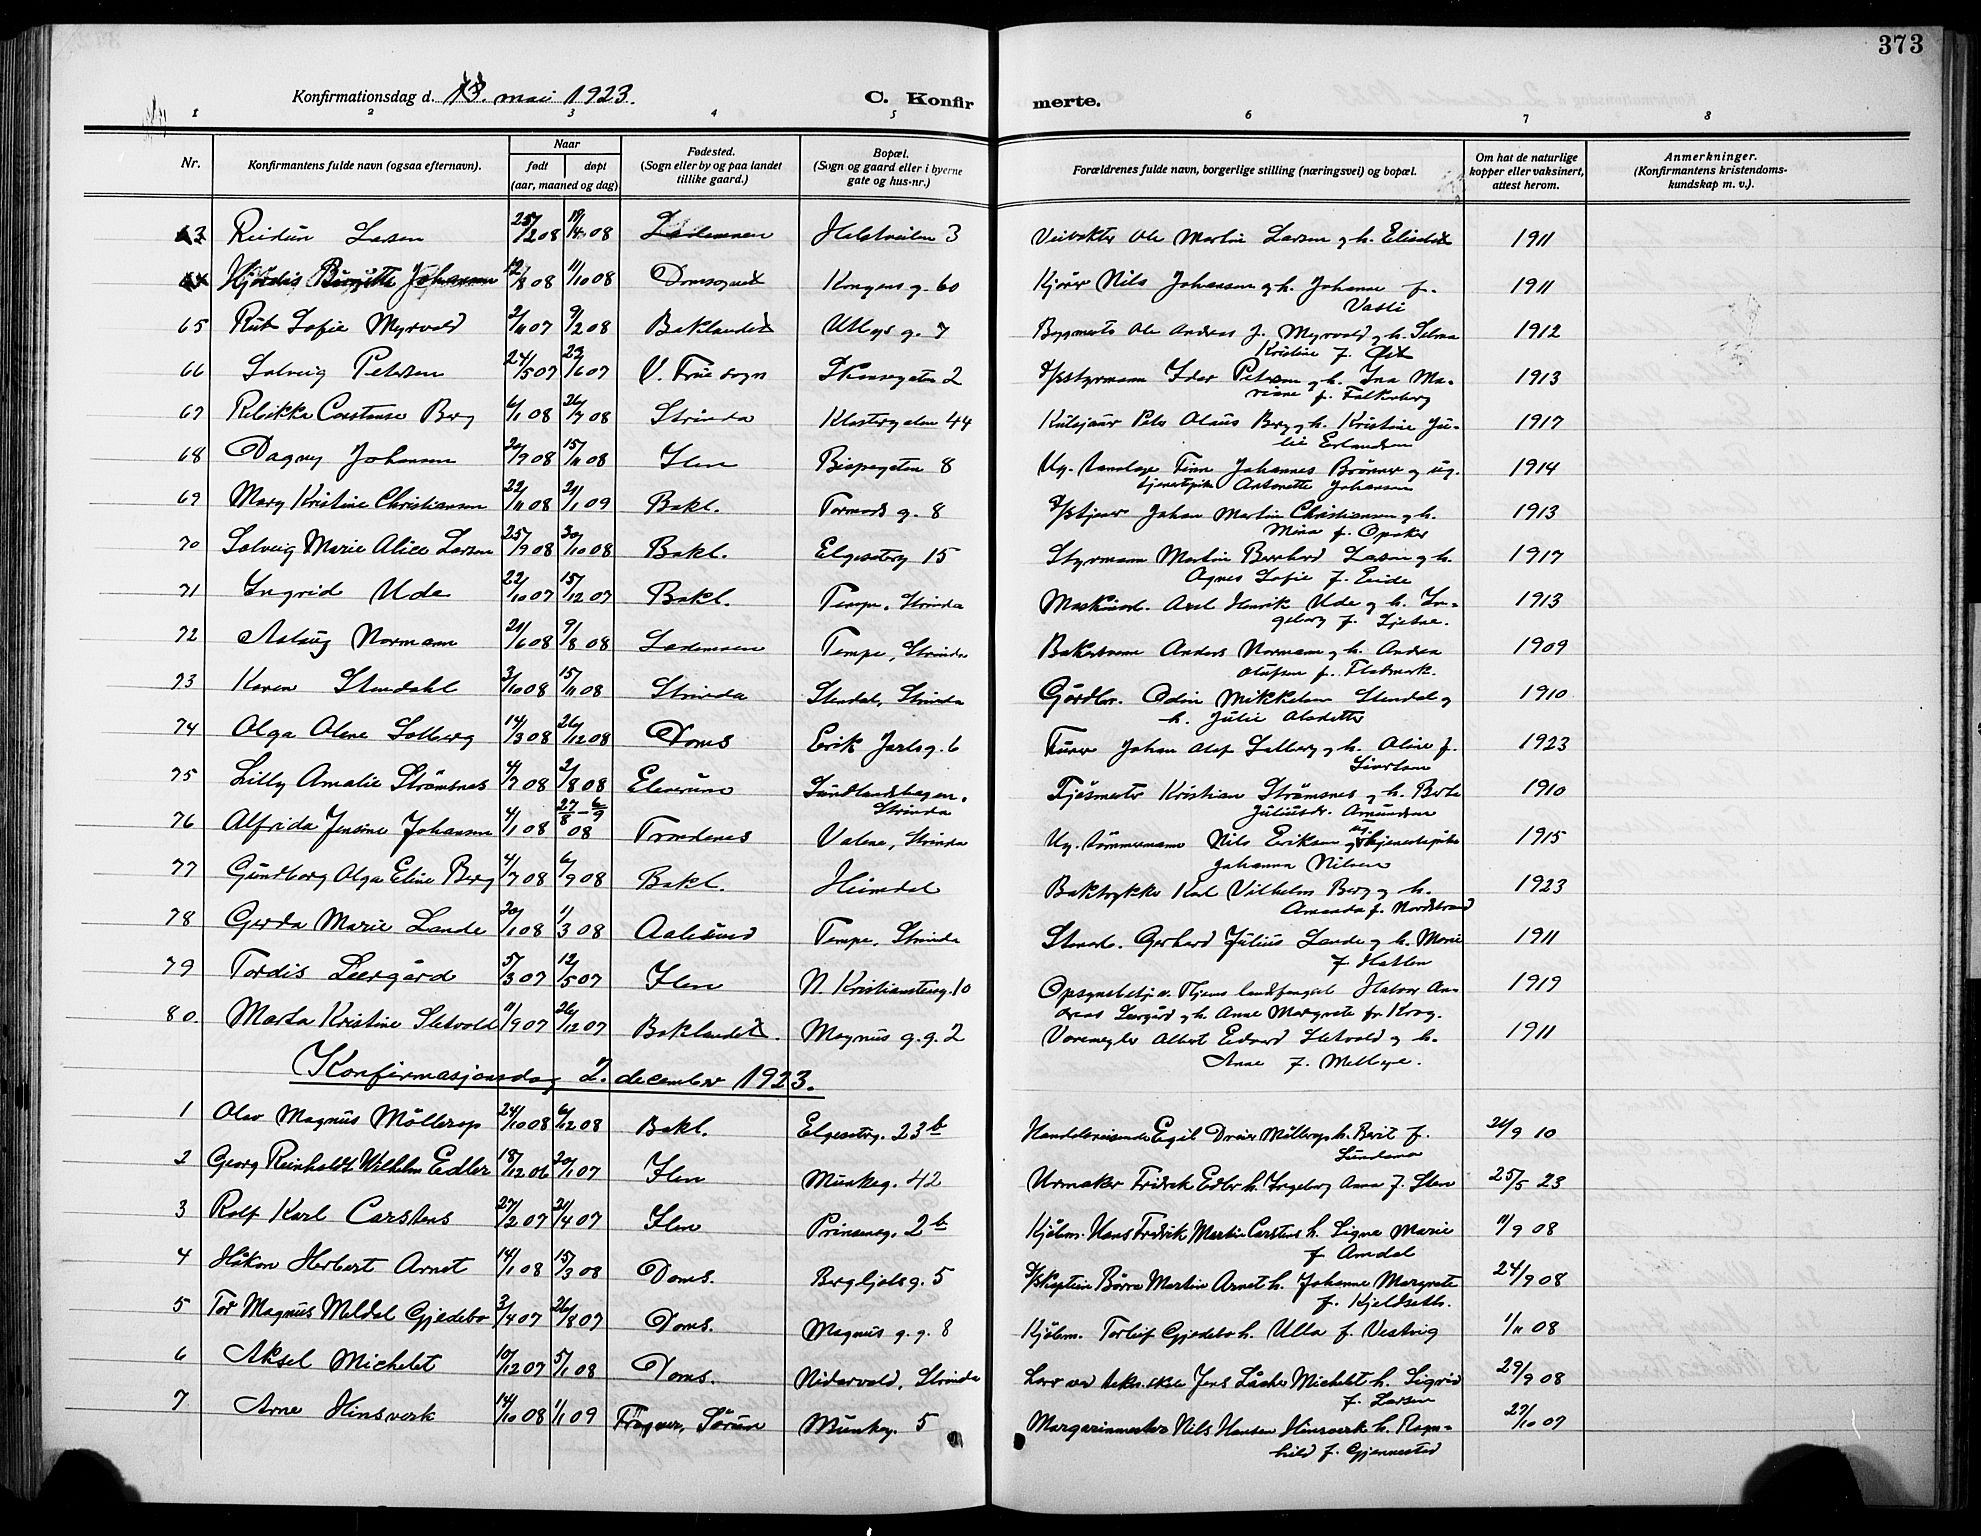 373
Konfirmationsdag d. 13. mai 1923.
C. Konfirmerte.
1 2 3 4 5 6 7 8
Nr.
Konfirmantens fulde navn (ogsaa efternavn).
Naar
født døpt
(aar, maaned og dag)
Fødested.
(Sogn eller by og paa landet
tillike gaard.)
Bopæl.
(Sogn og gaard eller i byerne
gate og hus-nr.)
Forældrenes fulde navn, borgerlige stilling (næringsvei) og bopæl.
Om hat de naturlige
kopper eller vaksinert,
attest herom.
Anmerkninger.
(Konfirmantens kristendoms-
kundskap m. v.).
63 Reidun Larsen 25/2 08 /4 08 Lademoen 3 Ole Martin Larsen g h. 1911
64 Hjørdis Birgitte Johansen 12/8 08 11/10 08 Domsognet Kongens g. 60 Kjører Nils Johansen g h. Johanne f. 1911
Vasli
65 Rut Sofie Myrvold 2/11 07 9/2 08 Baklandet g. 7 Bygmester Ole Andreas J. Myrvold g h. Selma 1912
Kristine f.
66 Solveig Petersen 24/5 07 23/6 07 V. Frue sogn 2 D/S styrmann Petersen g h. Ina Ma- 1913
riane f. Falkenberg
67 Rebekka Constanse Berg 6/1 08 26/7 08 Strinda Klostergaten 44 Peter Olaus Berg g h. Kristine Ju- 1917
lie Erlandsen
68 Dagny Johansen 20/9 08 15/11 08 Ilen Bispegaten 8 Ug. Finn Johannes Brønner og ug. 1914
tjenestepike Antonette Johansen
69 Mary Kristine Christiansen 22/11 08 21/1 09 Bakl. Tormods g. 8 Johan Martin Christiansen g h. 1913
Mina f. Opaker
70 Solveig Marie Alice Larsen 25/9 08 30/10 08 Bakl. Elgesæterg 15 Styrmann Martin Bernhard Larsen g h. 1917
Agnes Sofie f. Eide
71 Ingrid Ude 22/10 07 15/12 07 Bakl. Tempe, Strinda Maskinarb. Axel Henrik Ude g h. In- 1913
geborg f.
72 Aslaug Normann 21/6 08 9/8 08 Lademoen Tempe, Strinda Anders Normann g h. Andrea 1909
Olufsen f. Flatmark.
73 Karen Stendahl 3/10 08 15/11 08 Strinda Stendal, Strinda Gårdbr. Odin Mikkelsen Stendal g 1910
h. Julie
74 Olga Olene Solberg 14/3 08 26/12 08 Doms Erik Jarls g. 6 Johan Olaf Solberg g h. Oline f. 1923
Sivertsen
75 Lilly Amalie Strømsnes 4/7 08 2/8 08 Elverum Sundlandshagen, Kristian Strømsnes g h. Berte 1910
Strinda Juliusdr. Amundsen
76 Alfrida Jensine Johansen 4/1 08 27/8 - 6/9 08 Trondenes Valene, Strinda Ug. tømmermann Nils Eriksen g ug. tjenestepike 1915
Johanna Nilsen
77 Gundborg Olga Eline Berg 4/7 08 6/9 08 Bakl. Heimdal Boktrykker Karl Vilhelm Berg g h. 1923
Amanda f. Nordstrand
78 Gerda Marie Lande 20/1 08 1/3 08 Aalesund Tempe, Strinda Gerhard Julius Lande g h. Marie 1911
f. Hatlen
79 Tordis Leergård 5/3 07 12/5 07 Ilen N. Kristianstensg. 10 landsfengsel Halvor An- 1919
dreas Leergård g h. Anne Margrete fr. Krog.
80. Marta Kristine Sletvold 11/9 07 26/12 07 Baklandet. Magnus g. g. 2 Albert Edvard Sletvold g h. 1911
Anne f. Mellbye.
Konfirmasjonsdag 2. december 1923.
1 Olav Magnus Möllerop 24/10 08 6/12 08 Bakl. Elgesæterg. 23 b Handelsreisende Egil Dreier Möllerop h. Berit f. 26/9 10
Sundsmo
2 Georg Reinholdt Wilhelm Edler 18/12 06 20/1 07 Ilen Munkeg. 42 Urmaker Fridrik Edler h. Ingeborg Anna f. Sten 25/5 23
3 Rolf Karl Carstens 27/2 07 21/4 07 Ilen Prinsensg. 2 b Kjøbm. Hans Fredrik Martin Carstens h. Signe Marie 11/9 08
f. Amdal
4 Håkon Herbert Arnet 14/1 08 15/3 08 Doms. Bergljots g. 5 D/S kaptein Børre Martin Arnet h. Johanne Margrete 24/9 08
f. Kjeldseth.
5 Tor Magnus Meldal Gjedebo 3/4 07 26/8 07 Doms. Magnus g. g. 8 Kjøbm. Torleif Gjedebo h. Ulla f. Vestvig 1/11 08
6 Aksel Michelet 10/12 07 5/1 08 Doms. Nidarvold, Strinda Lærer ved tekn. skole Jens Michelet h. Sigrid 29/9 08
f. Larsen
7 Arne Hinsverk 14/10 08 1/1 09 Frogner, Sörum Munkeg. 5 Margarinmester Nils Hansen Hinsverk h. Ragn- 27/10 07
hild f. Gjennestad